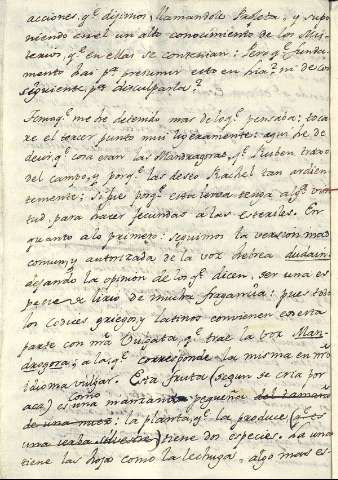 acciones, q.e digimos, llamandole Profeta, y supo
niendo en el un alto conocimiento de los Mis-
terios, q.e en ellas se contenian: Pero q.e funda-
mento hai p.a presumir esto en
siguiente, p.a disculparla?
Temo q.e me he detenido mas de lo q.e pensaba; toca
re el tercer punto mui ligeramente: aqui he de
decir q.e cosa eran las Mandragoras, q.e Ruben traxo
del campo, y porq.e las deseó Rachel tan ardien
temente; si fue porq.e esta tenga alg.a vir
tud para hacer fecundas a las esteriles. En
quanto a lo primero: seguimos la version mas
comun, y autorizada de la voz hebrea dudaim
dejando la opinion de los q.e dicen, ser una es
pecie de lirio de mucha fragancia: pues todos
los Codices griegos, y latinos convienen en esta
parte con n.ra Vulgata, q.e trae la voz Man
dragora; a la q.e corresponde la misma en n.ro
idioma vulgar. Esta fruta (segun se cria por
acá) es como una manzana pequeña del tamaño
de una nuez: la planta, q.e la produce (q.e es
una yerba silvestre) tiene dos especies. La una
tiene las hojas como la lechuga, algo mas es-